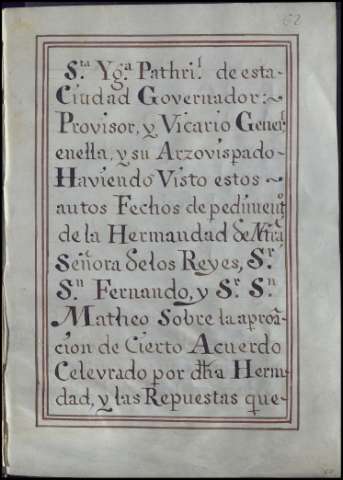 62
Sta. Yga. Pathril. de esta-
Ciudad Governador:~
Provisor, y Vicario Generl.
enella, y su Arzovispado-
Haviendo Visto estos ~
autos Fechos de pedimento
de la Hermandad de Ntra.
Señora de los Reyes, Sr.
Sn. Fernando, y Sr. Sn.
Matheo Sobre la aproã-
cion de Cierto Acuerdo
Celevrado por dha Herm̃-
dad, y las Repuestas que-